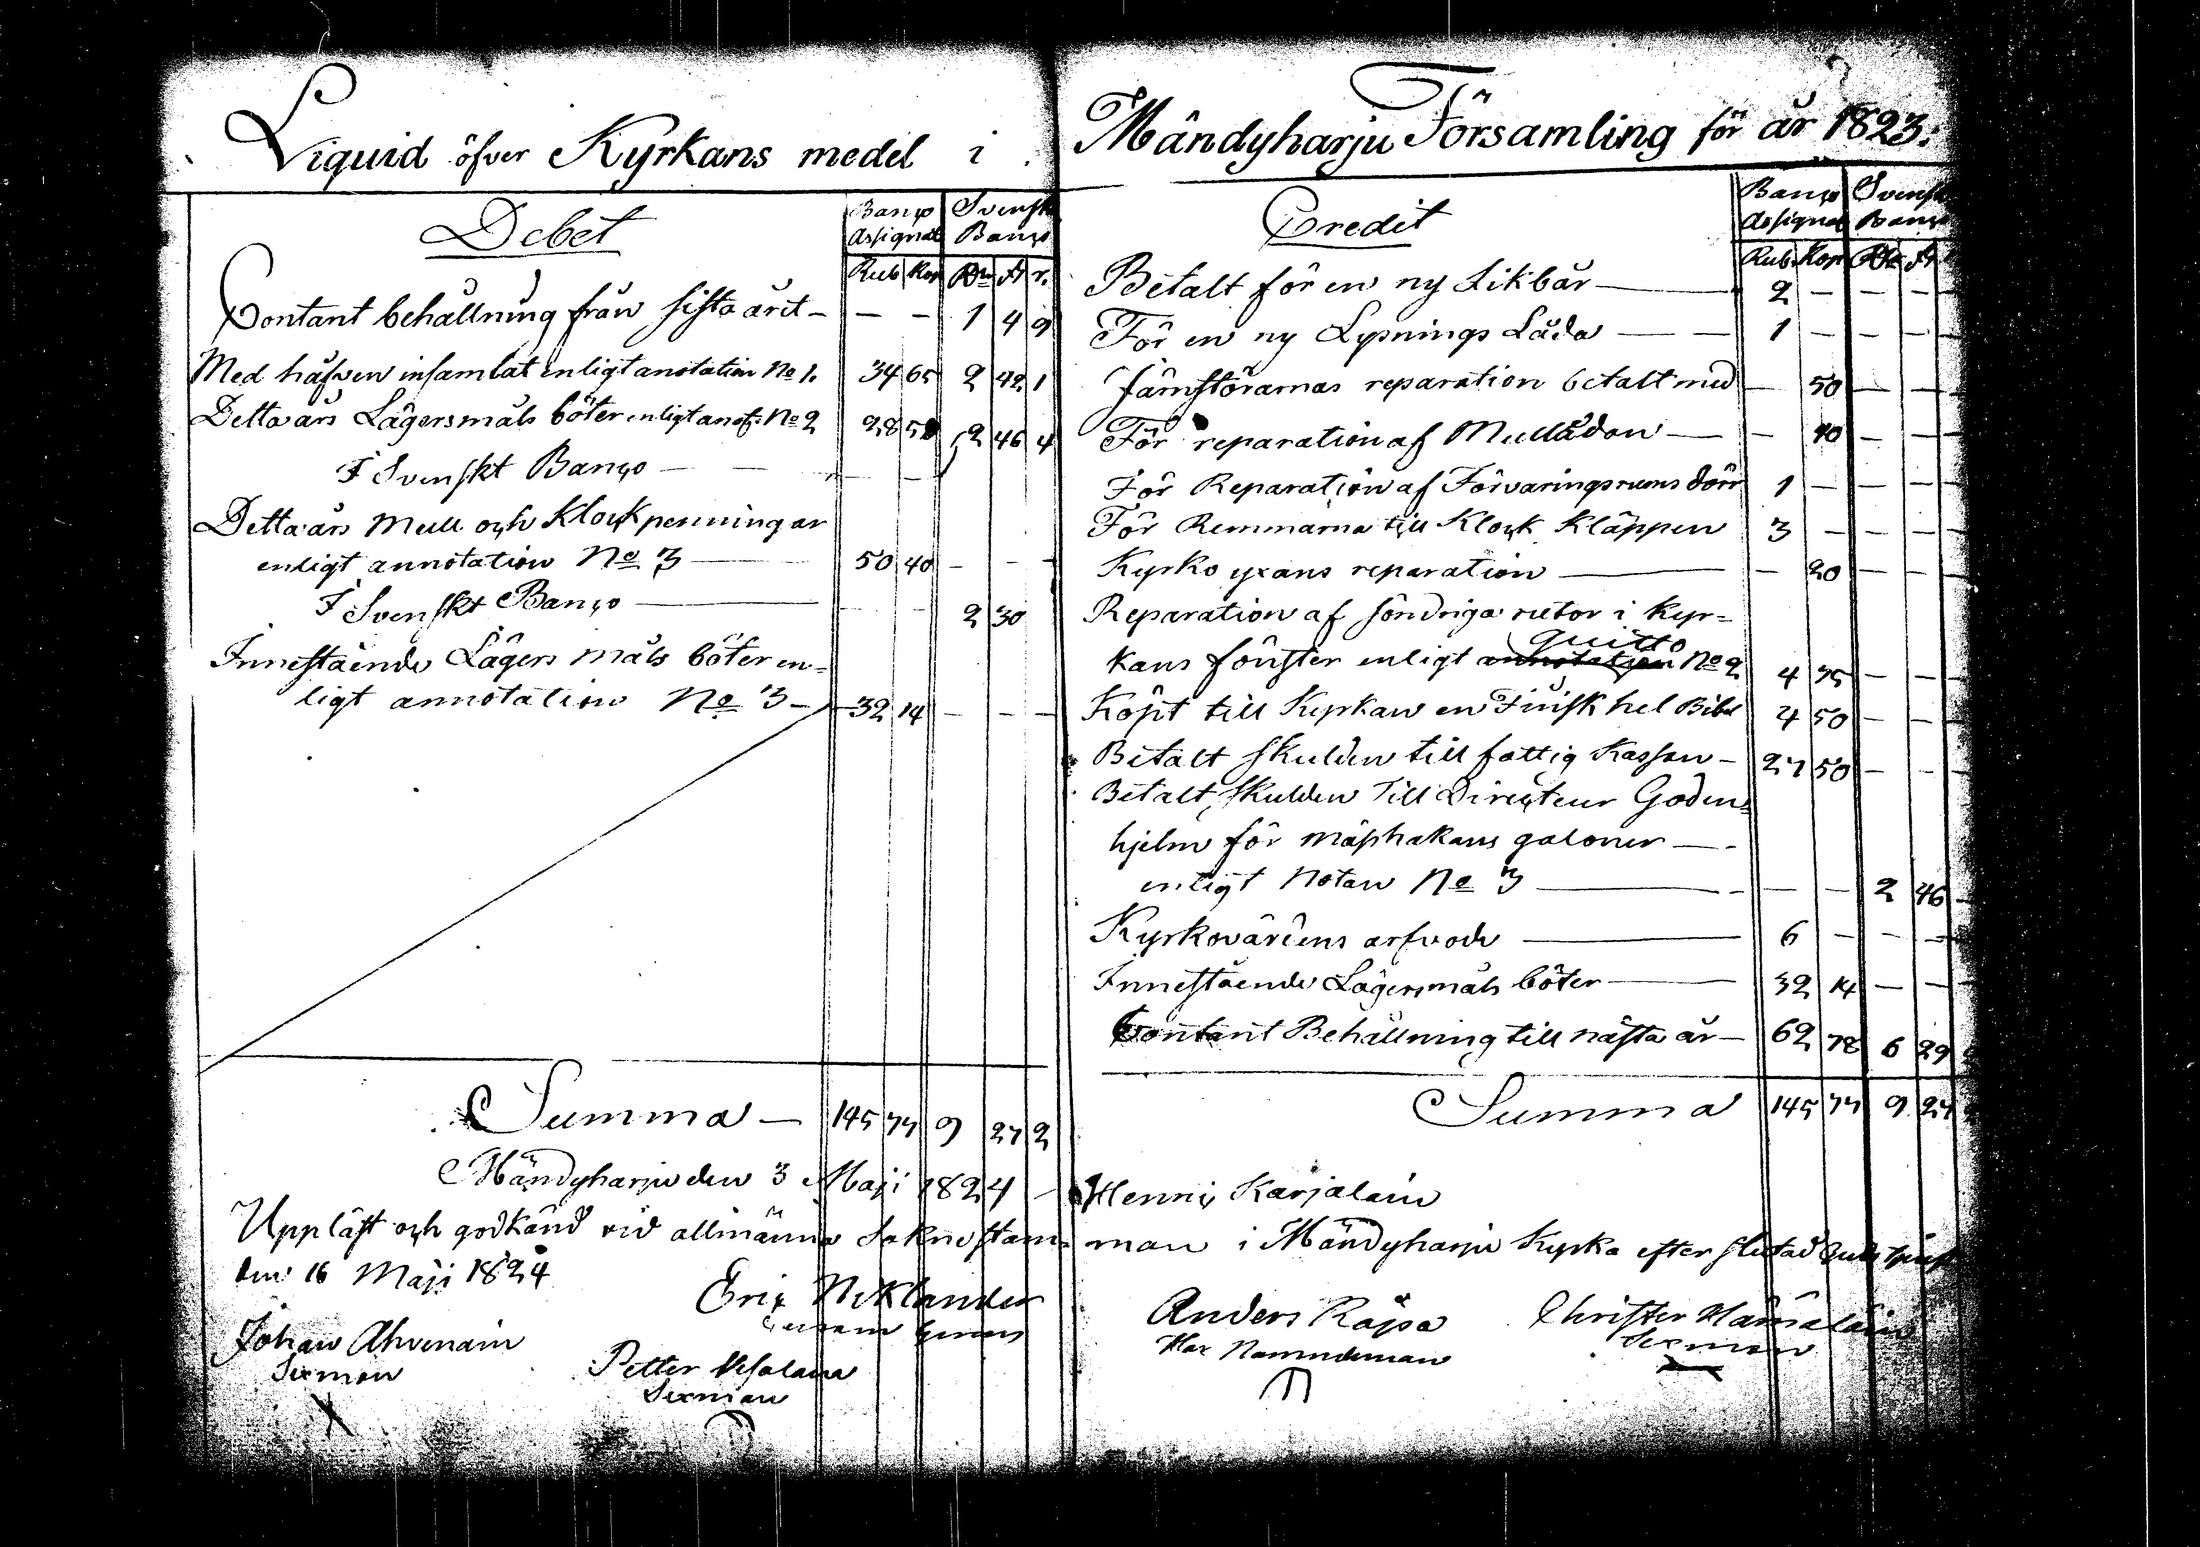 Liquid öfver Kyrkans medel i Mändyharju Församling för år 1823.
Debet
Banço Assignat Svenskt Banço
Rub Kop Rdr ß r.
Contant behållning från sista året — — — 1 4 9
Med håfven insamlat enligt anotation No 1. 34 65 2 42 1
Detta års Lägersmåls böter enligt anot: No 2 28 58 2 46 4
I Svenskt Banço — — — —
Detta års Mull och Klockpenningar
enligt annotation No 3 — 50 40 — — —
I Svenskt Banço — — — 2 30
Innestående Lägersmåls böter en=
ligt annotation No 3 — 32 14 — — —
Summa — 145 77 9 27 2
Mändyharju den 3 Maji 1824 —
Credit
Banço Assignat Svenskt Banço
Rub. Kop Rdr ß
Betalt för en ny Likbår — 2 — — —
För en ny Lysnings Låda — — 1 — — —
Jämstörarnas reparation betalt med — 50 — —
För reparation af Mullådan — — 40 — —
För Reparation af Förvaringsrums dörr 1 — — —
För Remmarna till Klock Kläppen 3 — — —
Kyrko yxans reparation — — 20 — —
Reparation af söndriga rutor i Kyr=
kans fönster enligt annotation quitto No 2 4 75 — —
Köpt till Kyrkan en Finsk hel Bibel 4 50 — —
Betalt skulden till fattig Kassan — 27 50 — —
Betalt skulden till Directeur Goden=
hjelm för mässhakans galoner —
enligt Notan No 3 — — — 2 46 —
Kyrkovärdens arfvode — 6 — — —
Innestående Lägersmåls böter — 32 14 — —
Contant Behållning till nästa år — 62 78 6 29
Summa 145 77 9 27
Henric Karjalain
Uppläst och godkänd vid allmänna Sokne stam= man i Mändyharju Kyrka efter slutad
den 16 Maji 1824
Eric Niklander
Johan Ahvenain
Sexman
X
Petter
Sexman
Anders Räjsä
Namndeman
Christer Hämäläin
Sexman